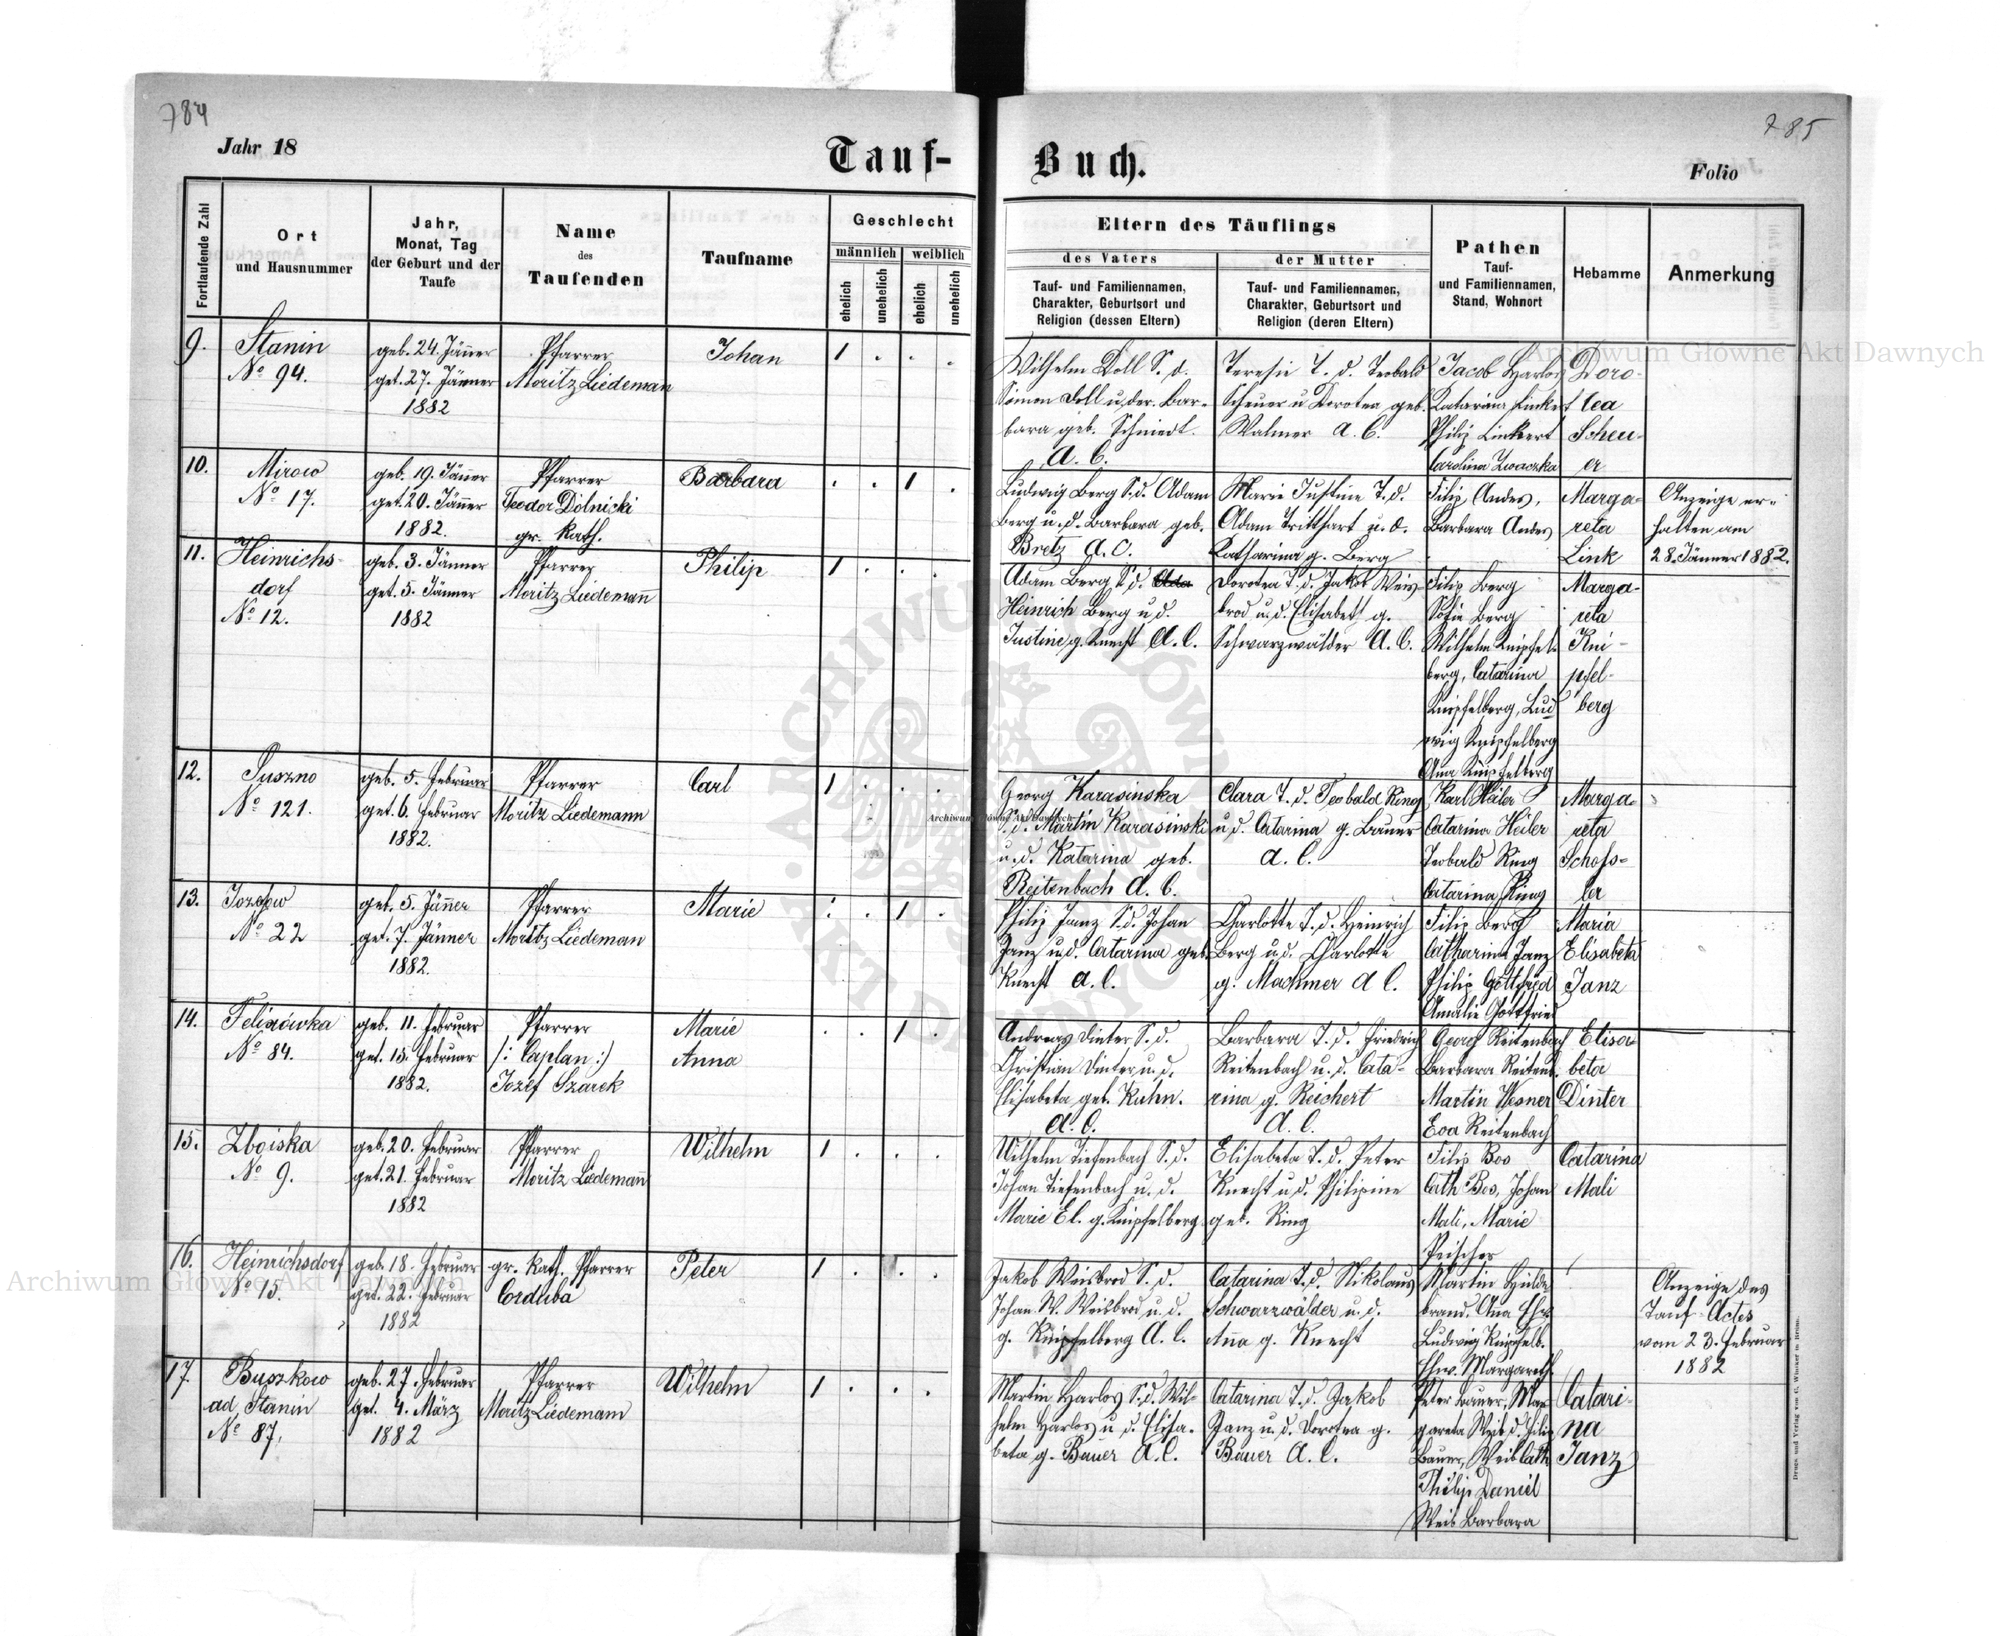 784
785
Jahr 18
Tauf-
Buch.
Folio
Fortlaufende Zahl
Ort
und Hausnummer
Jahr,
Monat, Tag
der Geburt und der
Taufe
Name
des
Taufenden
Taufname
Geschlecht
männlich
weiblich
ehelich
unehelich
ehelich
unehelich
Eltern des Täuflings
des Vaters
Tauf- und Familiennamen,
Charakter, Geburtsort und
Religion (dessen Eltern)
der Mutter
Tauf- und Familiennamen,
Charakter, Geburtsort und
Religion (deren Eltern)
Pathen
Tauf-
und Familiennamen,
Stand, Wohnort
Hebamme
Anmerkung
9.
Stanin
No 94.
geb. 24. Jänner
get. 27. Jänner
1882
Pfarrer
Moritz Liedeman
Johan
1 . . .
Wilhelm Doll S. d.
Simon Doll u. der. Bar-
bara geb. Schmidt.
A. C.
Teresie T. d. Teobald
Scheuer u Dorotea geb.
Walmer A. C.
Jacob Harlos
Katarina Linkert
Philip Linkert
Carolina Zwaczka
Doro-
tea
Scheu-
er
10.
Mirow
No 17.
geb. 19. Jänner
get. 20. Jänner
1882.
Pfarrer
Teodor Dolnicki
gr. Kath.
Barbara
. . 1 .
Ludwig Berg S. d. Adam
Berg u. d. Barbara geb.
Bretz A. C.
Marie Justine T. d.
Adam Tritthart u. d.
Katharina g. Berg
Filip Andes,
Barbara Andes
Marga-
reta
Link
Anzeige er-
halten am
28. Jänner 1882.
11.
Heinrichs-
dorf
No 12.
geb. 3. Jänner
get. 5. Jänner
1882
Pfarrer
Moritz Liedeman
Philip
1 . . .
Adam Berg S. d. Ada
Heinrich Berg u d.
Justine g. Knecht A. C.
Dorotea T. d. Jakob Weis-
brod u. d. Elisabet g.
Schwarzwälder A. C.
Filip Berg
Sofie Berg
Wilhelm Knipfel-
berg, Catarina
Knipfelberg, Lud
wig Knipfelberg
Ana Knipfelberg
Marga-
reta
Kni-
pfel-
berg
12.
Suszno
No 121.
geb. 5. Februar
get. 6. Februar
1882.
Pfarrer
Moritz Liedemann
Carl
1 . . .
Georg Karasinska
S. d. Martin Karasinski
u. d. Katarina geb.
Reitenbach A. C.
Clara T. d. Teobald Ring
u. d. Catarina g. Bauer
A. C.
Karl Heiler
Catarina Heiler
Teobald Ring
Catarina Ring
Marga-
reta
Schoss-
ler
13.
Jozefow
No 22
geb. 5. Jänner
get. 7. Jänner
1882.
Pfarrer
Moritz Liedeman
Marie
. . 1 .
Philip Janz S. d. Johan
Janz u. d. Catarina geb.
Knecht A. C.
Charlotte T. d. Heinrich
Berg u. d. Charlotte
g. Machmer A C.
Filip Berg
Catharina Janz
Philip Gottfried
Amalie Gottfried
Maria
Elisabeta
Janz
14.
Felizówka
No 84.
geb. 11. Februar
get. 15. Februar
1882.
Pfarrer
/: Caplan :/
Jozef Szarek
Marie
Anna
. . 1 .
Andreas Dinter S. d.
Christian Dinter u. d.
Elisabeta geb. Kuhn.
A. C.
Barbara T. d. Friedrich
Reitenbach u. d. Cata-
rina g. Reichert
A. C.
Georg Reitenbach
Barbara Reitenb.
Martin Wesner
Eva Reitenbach
Elisa-
beta
Dinter
15.
Zboiska
No 9.
geb. 20. Februar
get. 21. Februar
1882
Pfarrer
Moritz Liedemann
Wilhelm
1 . . .
Wilhelm Tiefenbach S. d.
Johan Tiefenbach u. d.
Marie El. g. Knipfelberg
Elisabeta T. d. Peter
Knecht u d. Philipine
geb. Ring
Filip Bos
Cath Bos, Johan
Mali, Marie
Preischer
Catarina
Mali
16.
Heinrichsdorf
No 15.
geb. 18. Februar
get. 22. Februar
1882
gr. Kath. Pfarrer
Cordluba
Peter
1 . . .
Jakob Weisbrod S. d.
Johan W. Weisbrod u. d.
g. Knipfelberg A. C.
Catarina T. d. Nikolaus
Schwarzwälder u. d.
Anna g. Knecht
Martin Hilde
brand. Ana Ehw.
Ludwig Knipfelb.
Ehw. Margareth.
Anzeige des
Tauf-Actes
vom 23. Februar
1882
17.
Buszkow
ad Stanin
No 87.
geb. 27. Februar
get. 4. März
1882
Pfarrer
Moritz Liedemann
Wilhelm
1 . . .
Martin Harlos S. d. Wil-
helm Harlos u d. Elisa-
beta g. Bauer A. C.
Catarina T. d. Jakob
Janz u. d. Dorotea g.
Bauer A. C.
Peter Bauer, Mar
gareta Weib d. Filip
Bauer, Weib Cath
Philip Daniel
Weib Barbara
Catari-
na
Janz
Druck und Verlag von C. Winiker in Brünn.
Archiwum Główne Akt Dawnych
Archiwum Główne Akt Dawnych
Archiwum Główne Akt Dawnych
ARCHIWUM GŁÓWNE AKT DAWNYCH